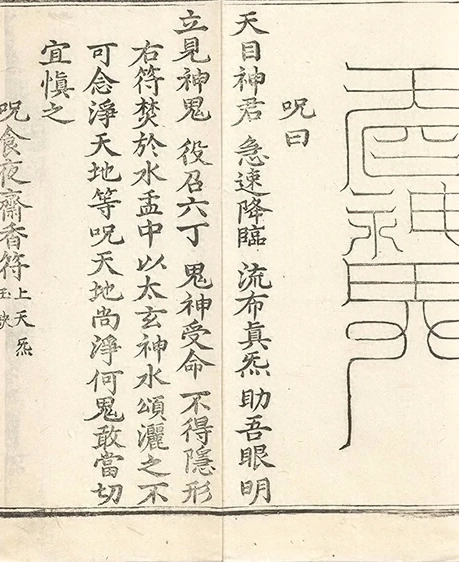 呪曰
天目神君 急速降臨 流布眞炁 助吾眼明
立見神鬼 役召六丁 鬼神受命 不得隱形
右符焚於水盂中以太玄神水頌灑之不
可念淨天地等呪天地尚淨何鬼敢當切
宜愼之
呪食夜齋香符上天炁
玉訣